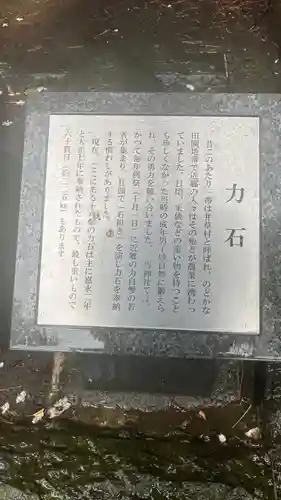 力石
昔このあたり一帯は井草村と呼ばれ、のどかな
田園地帯で近郷の人々はそのほとんどが農業に携わっ
ていました。日頃、米俵などの重い物を持つこと
も珍しくなかった当時の成年男子は自然に鍛えら
れ、その勇力を競い合いました。当神社でも、
かつて例祭(十月一日)に近郷の力自慢の若
者が集まり、社頭で「石担ぎ」を演じ力石を奉納
する慣わしがありました。
現在、ここにある十 の力石は主に嘉永二年
と大正七年に奉納されたもので、最も重いもので
六十貫目(約二二五kg)もあります。